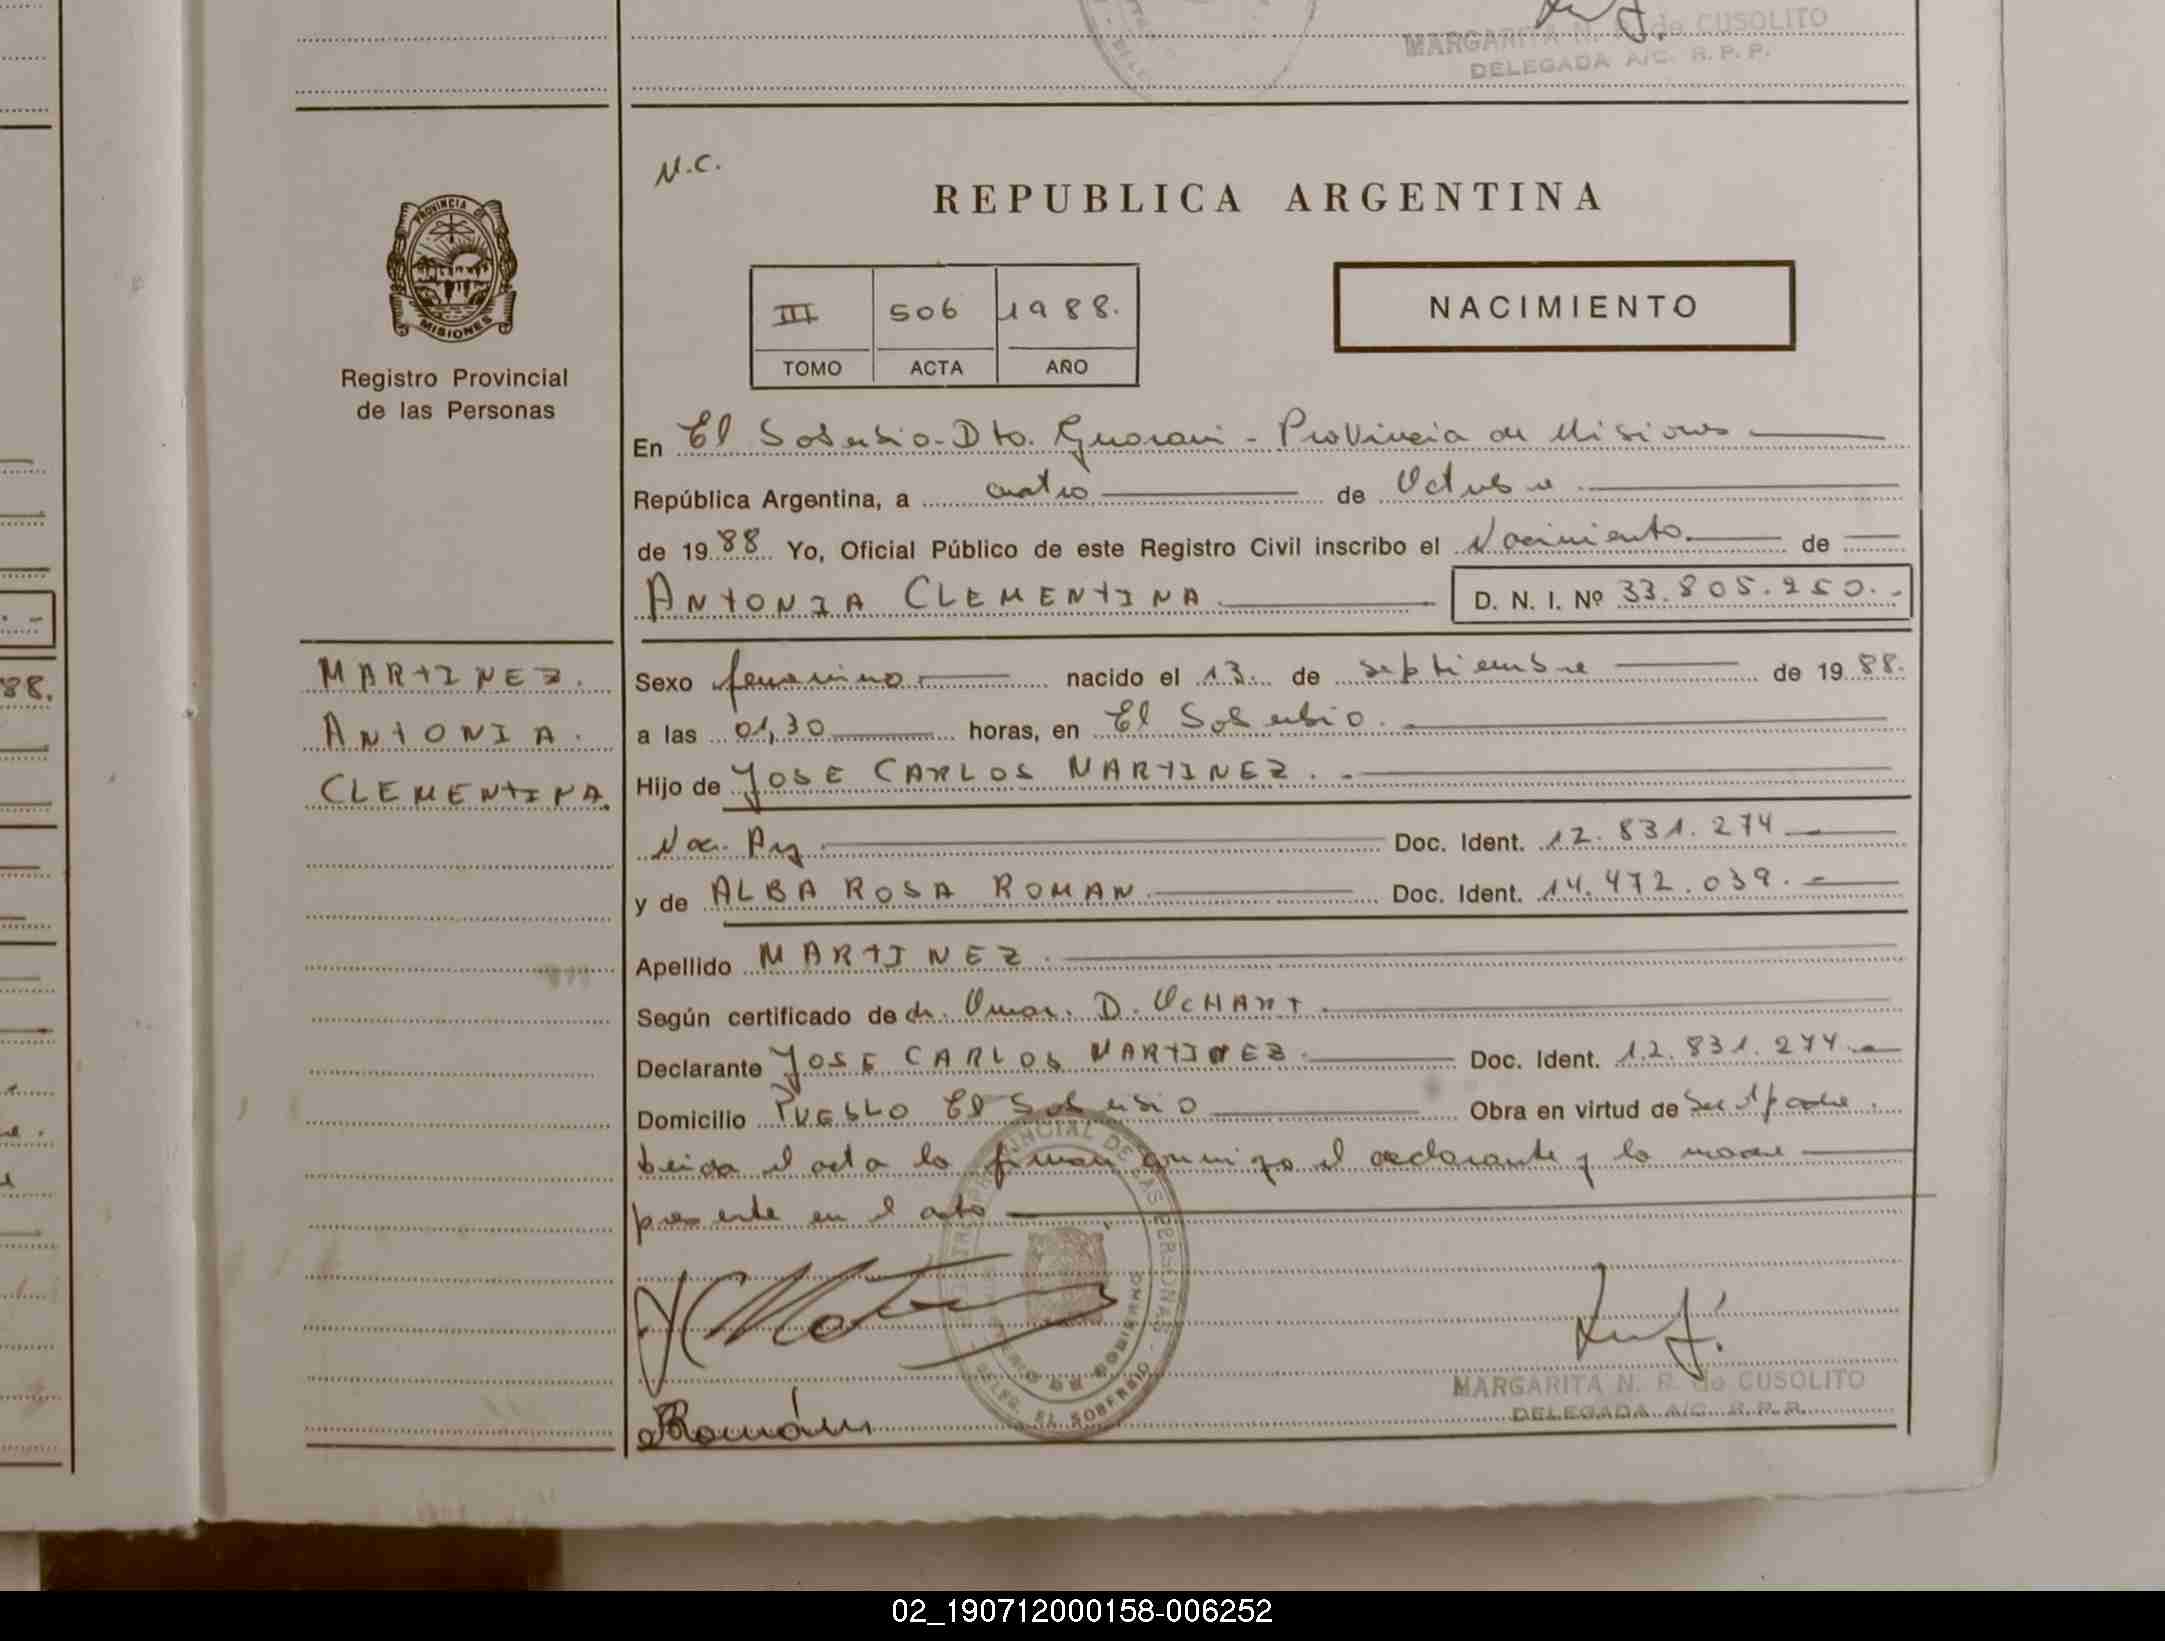 MARGARITA N. R. de CUSOLITO
DELEGADA A/C. R. P. P.
N.C.
REPUBLICA ARGENTINA
PROVINCIA DE
MISIONES
Registro Provincial
de las Personas
III 506 1988.
TOMO ACTA AÑO
NACIMIENTO
En El Soberbio - Dto. Guarani - Provincia de Misiones
República Argentina, a cuatro de Octubre
de 1988 Yo, Oficial Público de este Registro Civil inscribo el Nacimiento de
ANTONIA CLEMENTINA D. N. I. Nº 33.805.250.-
MARTINEZ.
ANTONIA.
CLEMENTINA.
Sexo femenino nacido el 13 de septiembre de 1988.
a las 01,30 horas, en El Soberbio.
Hijo de JOSE CARLOS MARTINEZ.
Nac. Arg Doc. Ident. 12.831.274
y de ALBA ROSA ROMAN Doc. Ident. 14.472.039.-
Apellido MARTINEZ
Según certificado de dr. Omar. D. OCHART
Declarante JOSE CARLOS MARTINEZ Doc. Ident. 12.831.274.-
Domicilio PUEBLO El Soberbio Obra en virtud de Ser el padre.
Leida el acta la firman conmigo el declarante y la madre
presente en el acto
DELEG. EL SOBERBIO
Román
MARGARITA N. R. de CUSOLITO
DELEGADA A/C. R. P. P.
88.
02_190712000158-006252